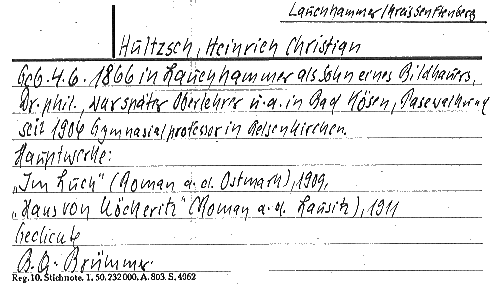 Lauchhammer/Kreis Senftenberg
Hültzsch, Heinrich Christian
Geb. 4.6. 1866 in Lauchhammer als Sohn eines Bildhauers,
Dr. phil., war später Oberlehrer u.a. in Bad Kösen, Pasewalk und
seit 1906 Gymnasialprofessor in Gelsenkirchen.
Hauptwerke:
„Im Luch“ (Roman a.d. Ostmark), 1909,
„Hans von Köckeritz“ (Roman a.d. Lausitz), 1911
Gedichte
B.A.- Brümmer.
Reg. 10. Stichnote. 1. 50. 232 000. A. 803. S. 4962